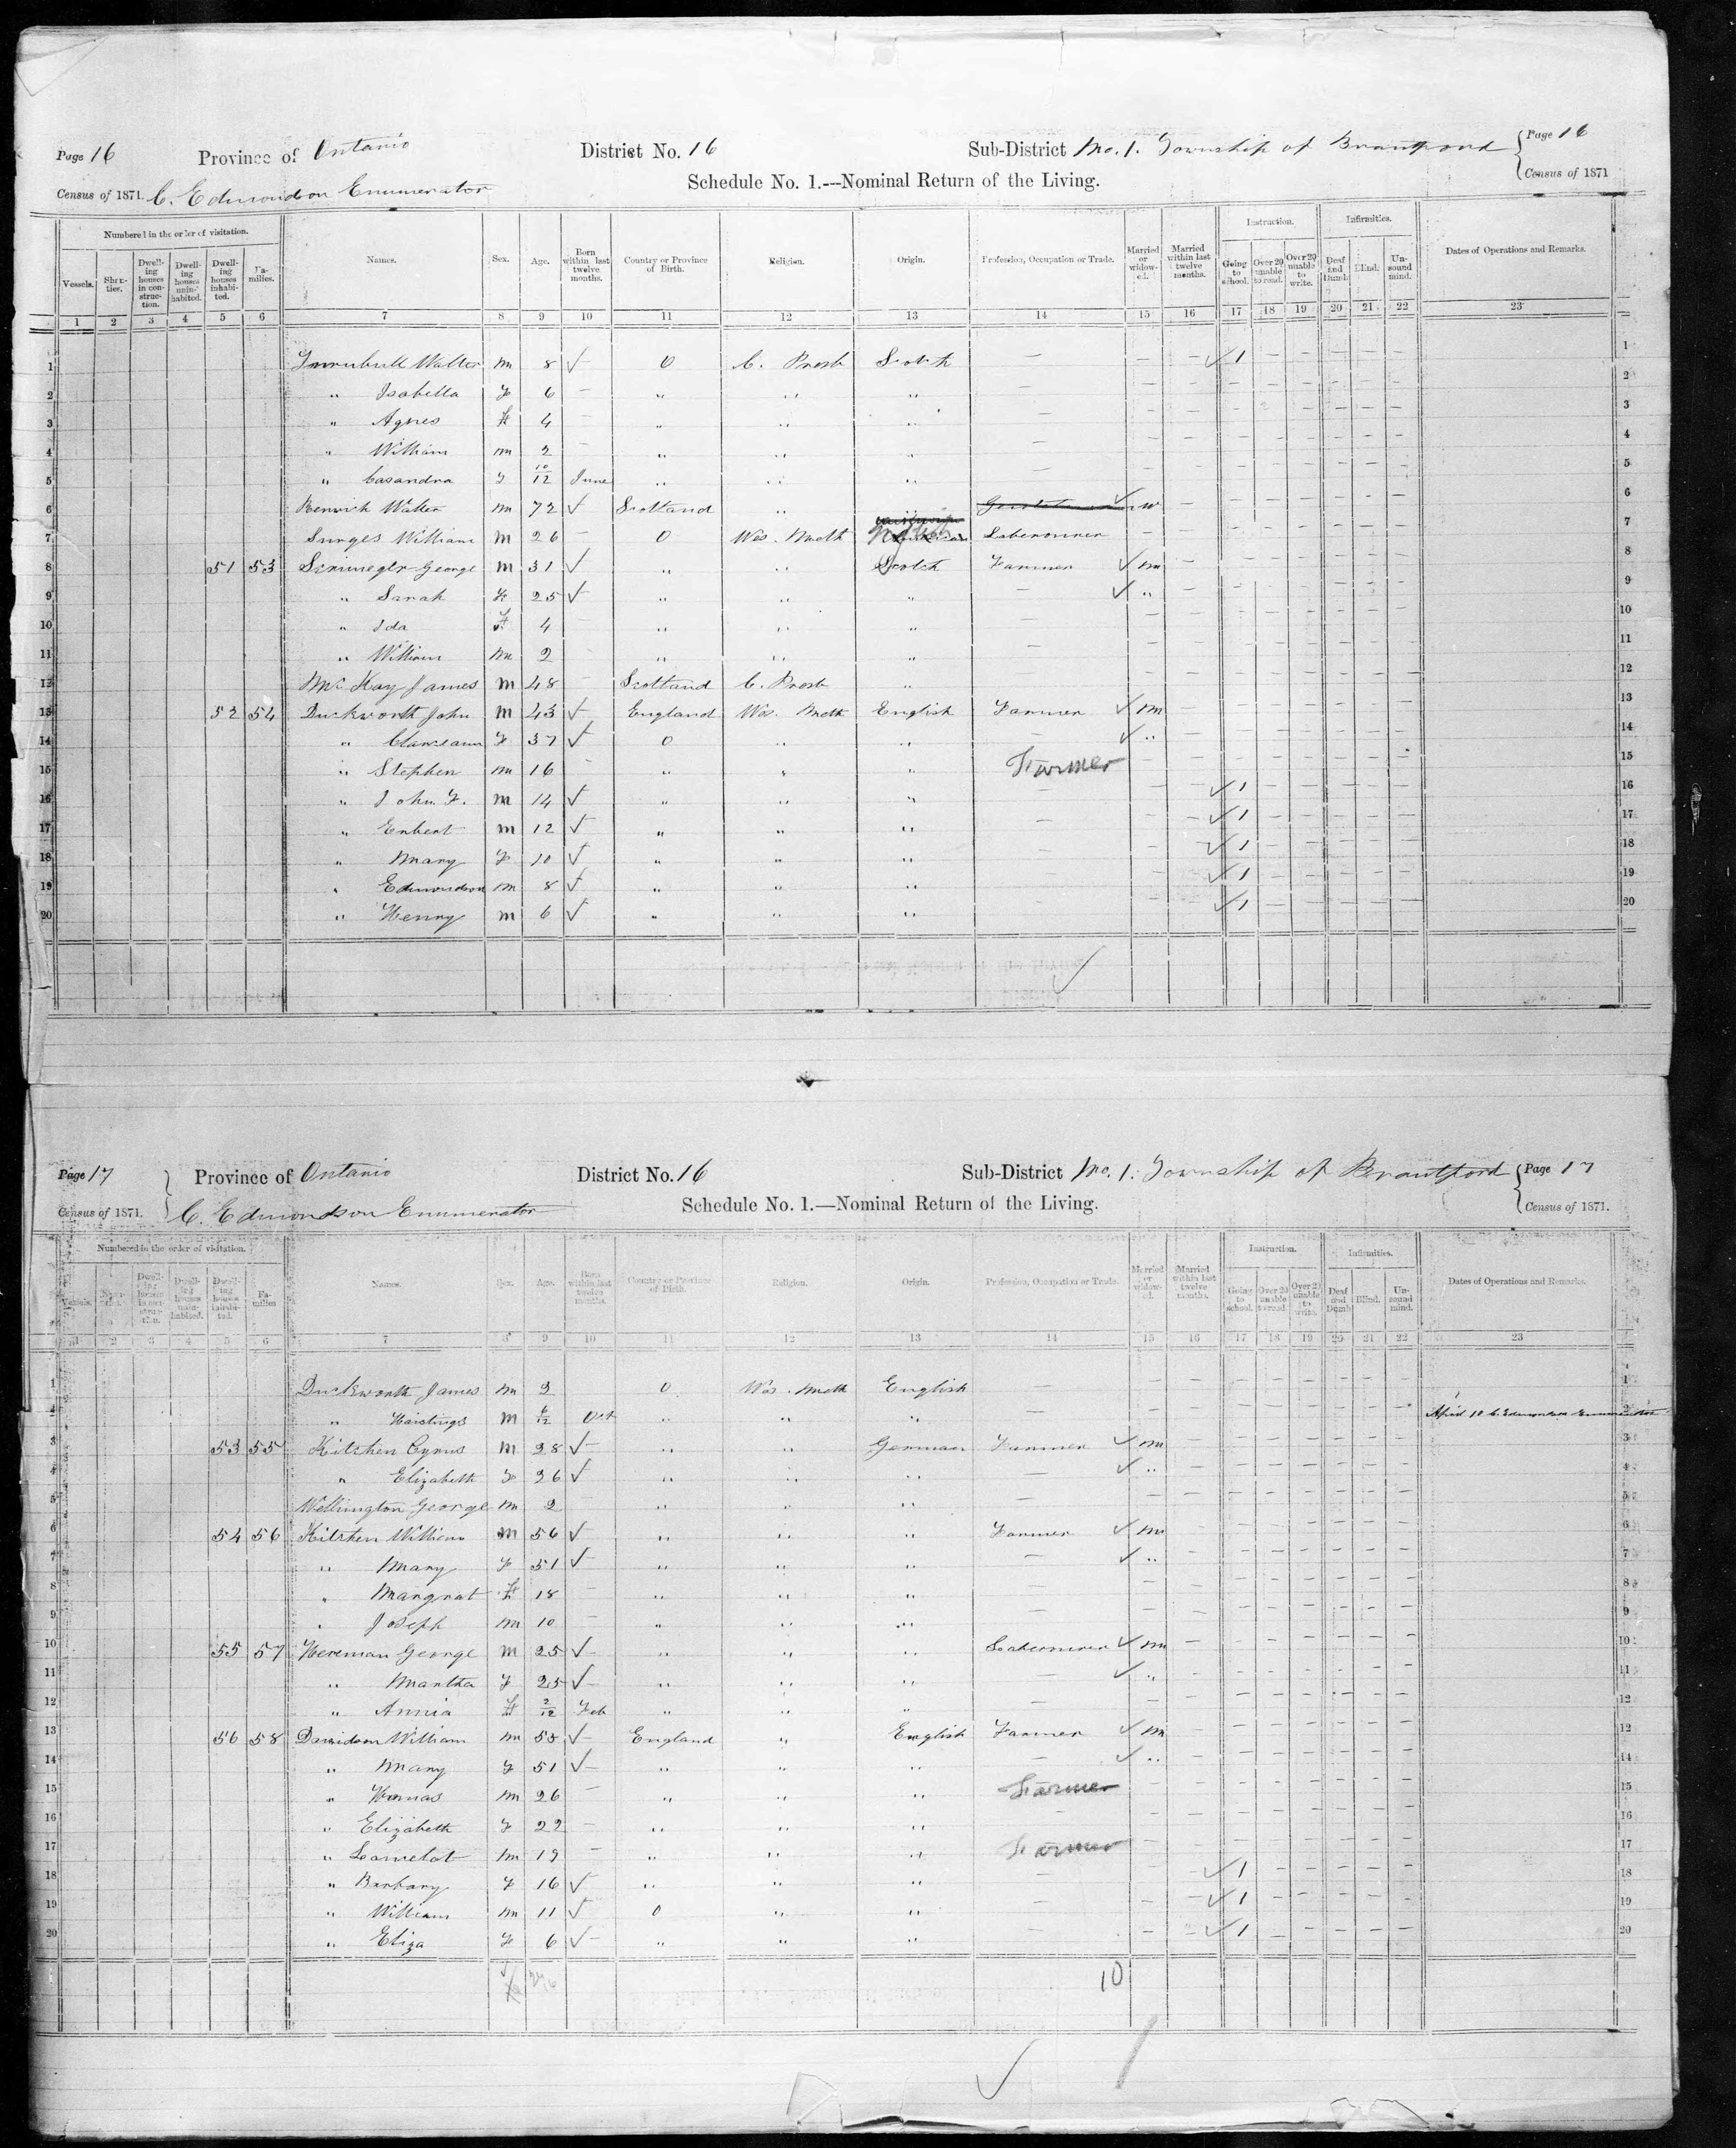 Page 16 Province of Ontario District No. 16 Sub-District No. 1. Township of Brantford Page 16
Census of 1871. C. Edmondson Enumerator Schedule No. 1.—Nominal Return of the Living. Census of 1871
Numbered in the order of visitation. Instruction. Infirmities.
Vessels. Shanties. Dwelling houses in construction. Dwelling houses uninhabited. Dwelling houses inhabited. Families. Names. Sex. Age. Born within last twelve months. Country or Province of Birth. Religion. Origin. Profession, Occupation or Trade. Married or widowed. Married within last twelve months. Going to school. Over 20 unable to read. Over 20 unable to write. Deaf and Dumb. Blind. Unsound mind. Dates of Operations and Remarks.
1 2 3 4 5 6 7 8 9 10 11 12 13 14 15 16 17 18 19 20 21 22 23
1 Turnbull Walter M 8 ✓ O C. Presb Scotch — — — ✓ 1 — — — — — 1
2 " Isabella F 6 — " " " — 2
3 " Agnes F 4 — " " " — 3
4 " William M 2 — " " " — 4
5 " Casandra F 10/12 June " " " — 5
6 Renwick Walter M 72 ✓ Scotland " ✓ W 6
7 William M 26 — O Wes. Meth Labourer — 7
8 51 53 George M 31 ✓ " " Scotch Farmer ✓ M 8
9 " Sarah F 25 ✓ " " " — ✓ " 9
10 " Ida F 4 — " " " — 10
11 " William M 2 " " " — 11
12 McKay James M 48 — Scotland C. Presb " 12
13 52 54 Duckworth John M 43 ✓ England Wes. Meth English Farmer ✓ M 13
14 " F 37 ✓ O " " — ✓ " 14
15 " Stephen M 16 — " " " Farmer 15
16 " John F. M 14 ✓ " " " — ✓ 1 16
17 " Enbert M 12 ✓ " " " — ✓ 1 17
18 " Mary F 10 ✓ " " " — ✓ 1 18
19 " Edmondson M 8 ✓ " " " — ✓ 1 19
20 " Henry M 6 ✓ " " " ✓ 1 20
Page 17 Province of Ontario District No. 16 Sub-District No. 1. Township of Brantford Page 17
Census of 1871. C. Edmondson Enumerator Schedule No. 1.—Nominal Return of the Living. Census of 1871.
Numbered in the order of visitation. Instruction. Infirmities.
Vessels. Shanties. Dwelling houses in construction. Dwelling houses uninhabited. Dwelling houses inhabited. Families Names. Sex. Age. Born within last twelve months. Country or Province of Birth. Religion. Origin. Profession, Occupation or Trade. Married or widowed. Married within last twelve months. Going to school. Over 20 unable to read. Over 20 unable to write. Deaf and Dumb Blind. Unsound mind. Dates of Operations and Remarks.
1 2 3 4 5 6 7 8 9 10 11 12 13 14 15 16 17 18 19 20 21 22 23
1 Duckworth James M 2 O Wes. Meth English — 1
2 " Haistings M 6/12 Oct " " " — April 10 C. Edmondson Enumerator 2
3 53 55 Kitchen Cyrus M 28 ✓ " " German Farmer ✓ M 3
4 " Elizabeth F 26 ✓ " " " — ✓ " 4
5 Wellington George M 2 " " " — 5
6 54 56 Kitchen William M 56 ✓ " " " Farmer ✓ M 6
7 " Mary F 51 ✓ " " " — ✓ " 7
8 " Margrat F 18 — " " " — 8
9 " Joseph M 10 — " " " — 9
10 55 57 George M 25 ✓ " " " Labourer ✓ M 10
11 " Martha F 25 ✓ " " " — ✓ " 11
12 " Annia F 2/12 Feb " " " — 12
13 56 58 Davidson William M 55 ✓ England " English Farmer ✓ M 12
14 " Mary F 51 ✓ " " " — ✓ " 14
15 " M 26 — " " " Farmer 15
16 " Elizabeth F 22 — " " " — 16
17 " M 19 — " " " Farmer 17
18 " Barbary F 16 ✓ " " " — ✓ 1 18
19 " William M 11 ✓ O " " — ✓ 1 19
20 " Eliza F 6 ✓ " " " — ✓ 1 20
10